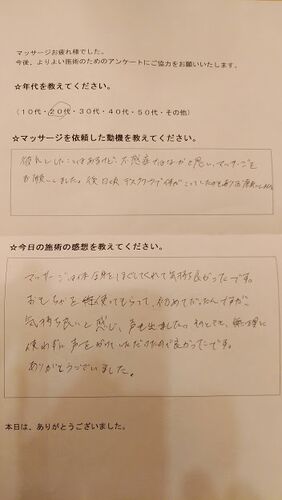 マッサージお疲れ様でした。
今後、よりよい施術のためのアンケートにご協力をお願いいたします。
☆年代を教えてください。
(10代・20代・30代・40代・50代・その他)
☆マッサージを依頼した動機を教えてください。
マッサージを
お願いしました。後日は、デスクワークで体が
☆今日の施術の感想を教えてください。
マッサージは体全身をほぐしてくれて気持ち良かったです。
おもちゃを 使ってもらって、初めてだったんですが、
気持ち良いと感じ、声も出ました。 無理に
使わずに声をかけていただけたので良かったです。
ありがとうございました。
本日は、ありがとうございました。